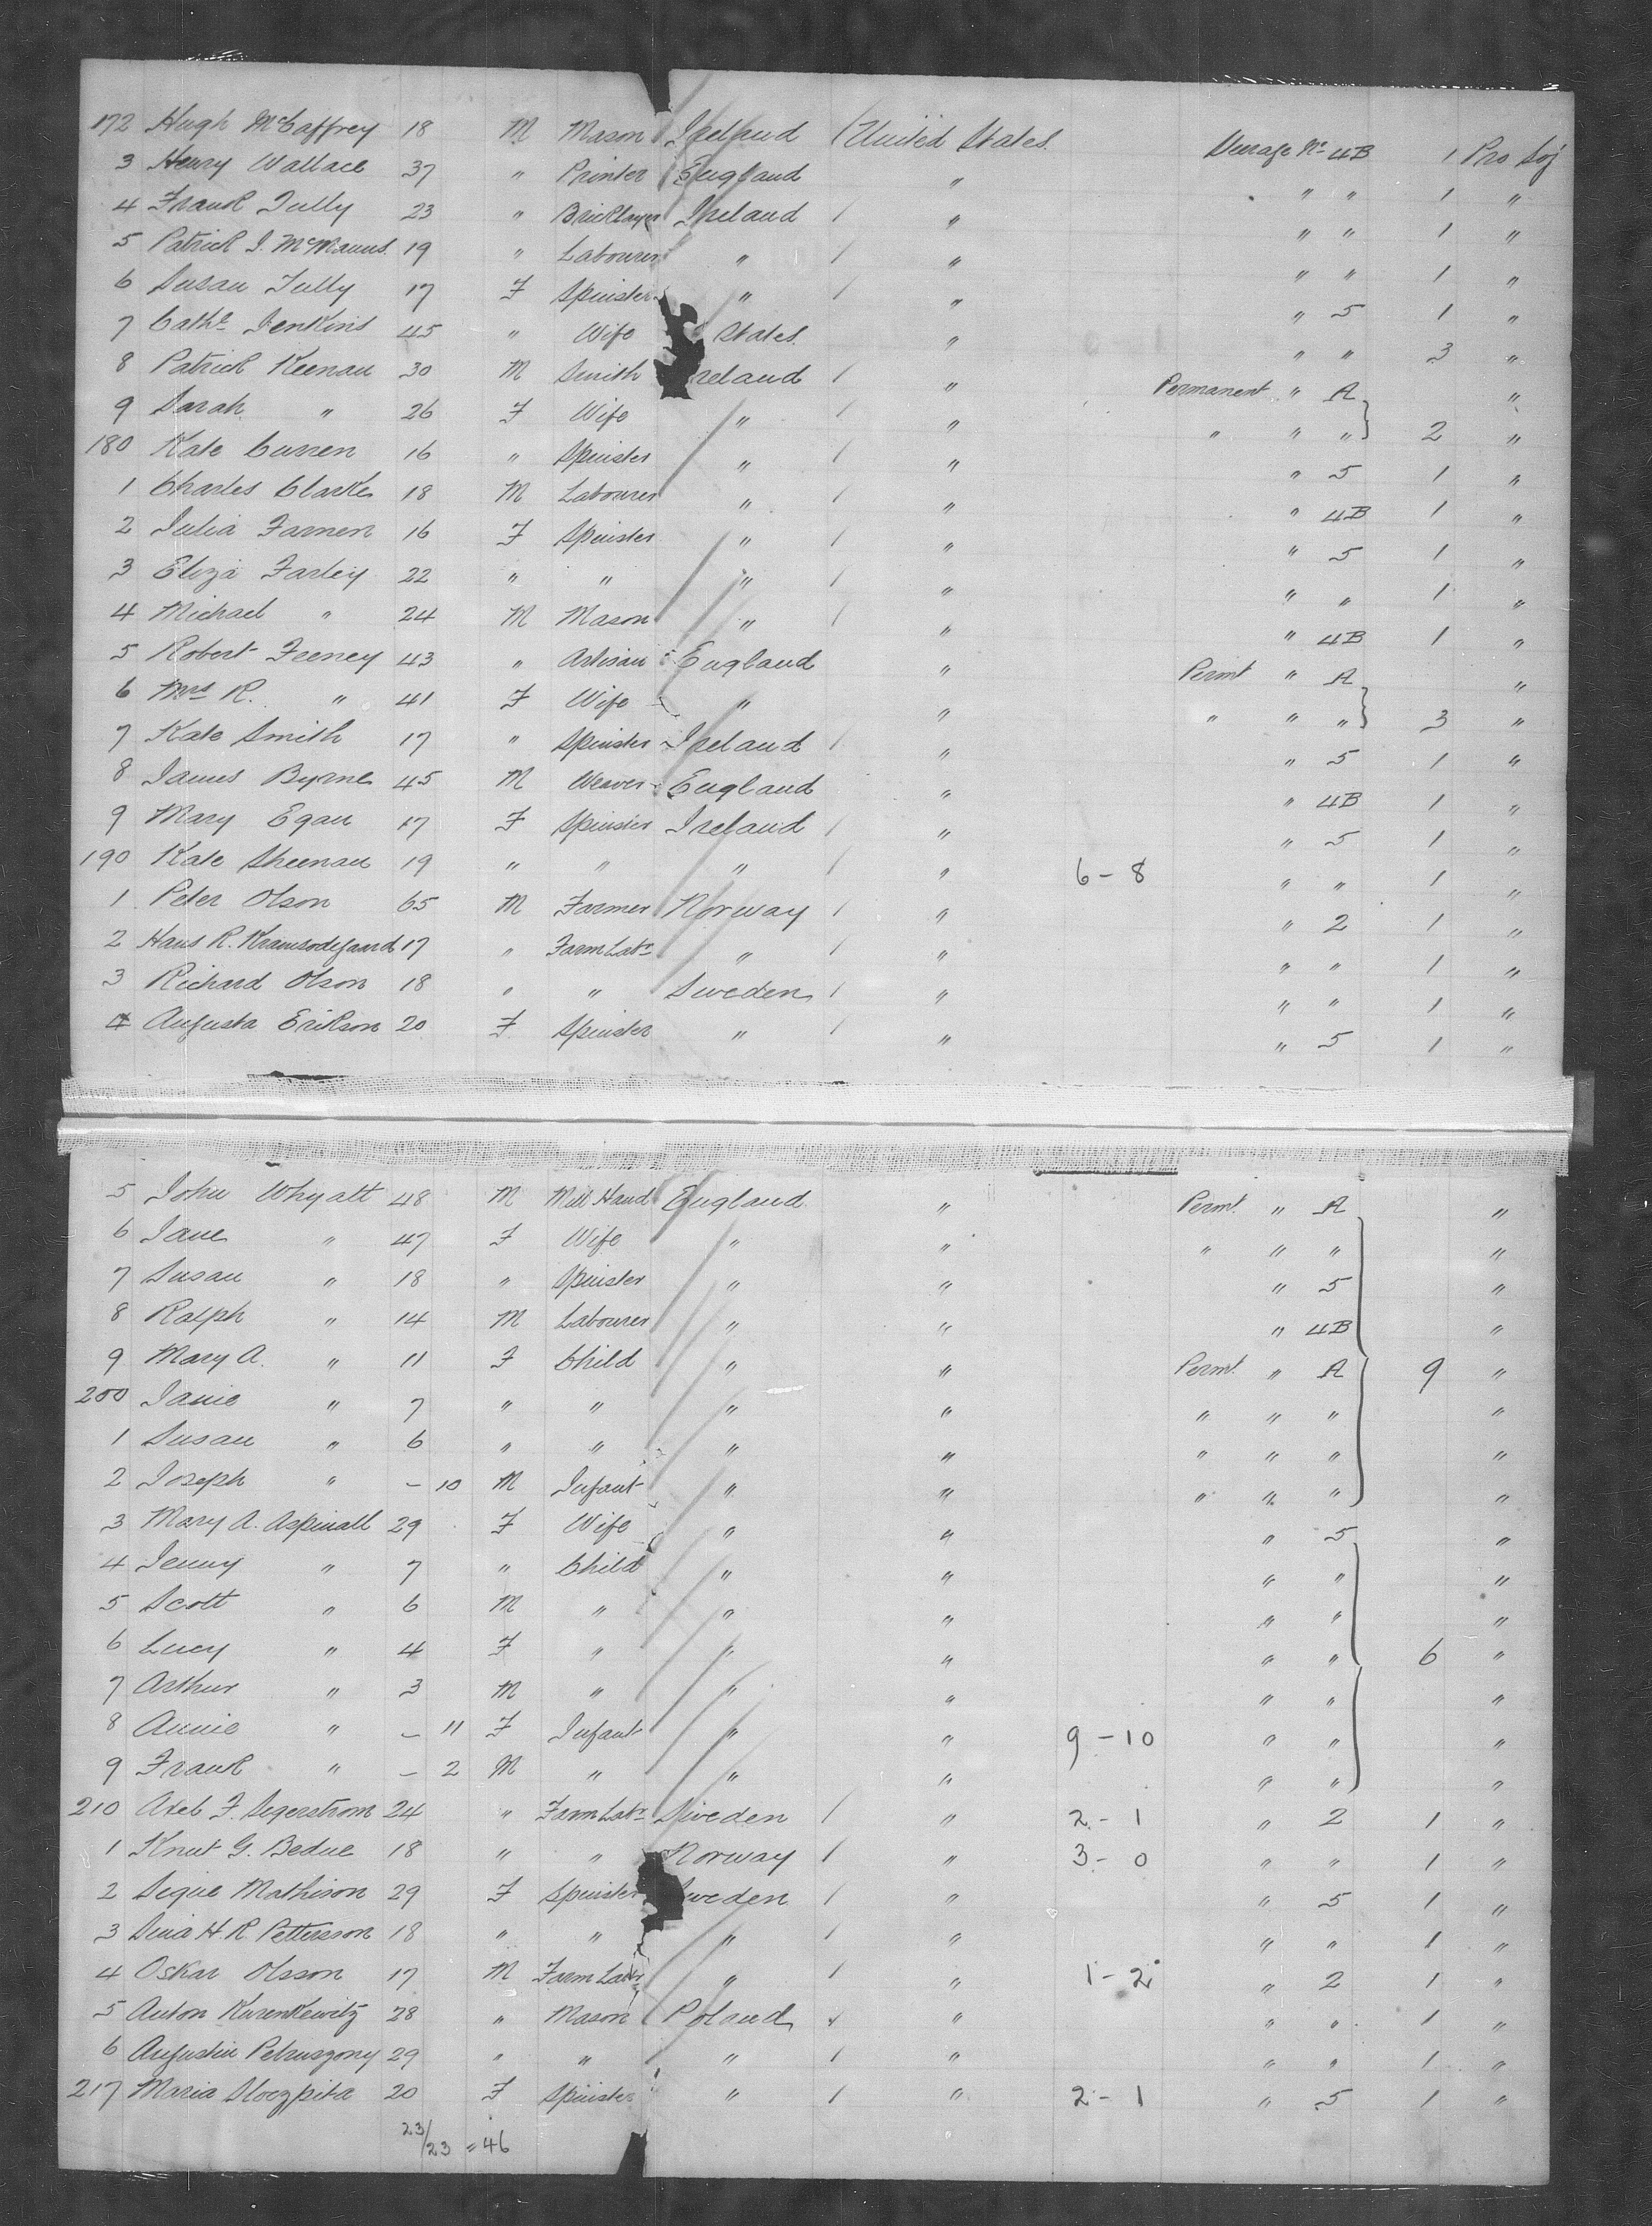 172 Hugh McCaffrey 18 M Mason Ireland / United States Steerage No 4B 1 Pro Soj
3 Henry Wallace 37 " Printer England " " " 1 "
4 Frank Tully 23 " Bricklayer Ireland / " " " 1 "
5 Patrick J. McManus 19 " Labourer " / " " " 1 "
6 Susan Tully 17 F Spinster " / " " 5 1 "
7 Cathe Jenkins 45 " Wife States " " " 3 "
8 Patrick Keenan 30 M Smith Ireland / " Permanent " A "
9 Sarah " 26 F Wife " / " " " " 2 "
180 Kate Curren 16 " Spinster " / " " 5 1 "
1 Charles Clarke 18 M Labourer " / " " 4B 1 "
2 Julia Farnen 16 F Spinster " / " " 5 1 "
3 Eliza Farley 22 " " " / " " " 1 "
4 Michael " 24 M Mason " / " " 4B 1 "
5 Robert Feeney 43 " Artisan England " Permt " A "
6 Mrs R. " 41 F Wife " " " " " 3 "
7 Kate Smith 17 " Spinster Ireland / " " 5 1 "
8 James Byrne 45 M Weaver England " " 4B 1 "
9 Mary Egan 17 F Spinster Ireland / " " 5 1 "
190 Kate Sheenan 19 " " " / " 6-8 " " 1 "
1 Peter Olson 65 M Farmer Norway / " " 2 1 "
2 Hans R. 17 " Farm Labr " / " " " 1 "
3 Richard Olson 18 " " Sweden / " " " 1 "
4 Augusta Erikson 20 F Spinster " / " " 5 1 "
5 John Whyatt 48 M Mill Hand England " Permt. " A "
6 Jane " 47 F Wife " " " " " "
7 Susan " 18 " Spinster " " " 5 "
8 Ralph " 14 M Labourer " " " 4B "
9 Mary A. " 11 F Child " " Permt. " A 9 "
200 Janie " 7 " " " " " " " "
1 Susan " 6 " " " " " " " "
2 Joseph " - 10 M Infant " " " " " "
3 Mary A. Aspinall 29 F Wife " " " 5 "
4 Jenny " 7 " Child " " " " "
5 Scott " 6 M " " " " " "
6 Lucy " 4 F " " " " " 6 "
7 Arthur " 3 M " " " " " "
8 Annie " - 11 F Infant " " 9-10 " " "
9 Frank " - 2 M " " " " " "
210 Axel F. Segerstrom 24 " Farm Labr Sweden / " 2-1 " 2 1 "
1 Knut G. Bedue 18 " " Norway / " 3-0 " " 1 "
2 Signe Mathison 29 F Spinster Sweden / " " 5 1 "
3 Sina H. R. Petterson 18 " " " / " " " 1 "
4 Oskar Olsson 17 M Farm Labr " / " 1-2 " 2 1 "
5 Anton Kurenkewitz 28 " Mason Poland / " " " 1 "
6 Augustin 29 " " " / " " " 1 "
217 Maria 20 F Spinster " / " 2-1 " 5 1 "
23/23 = 46